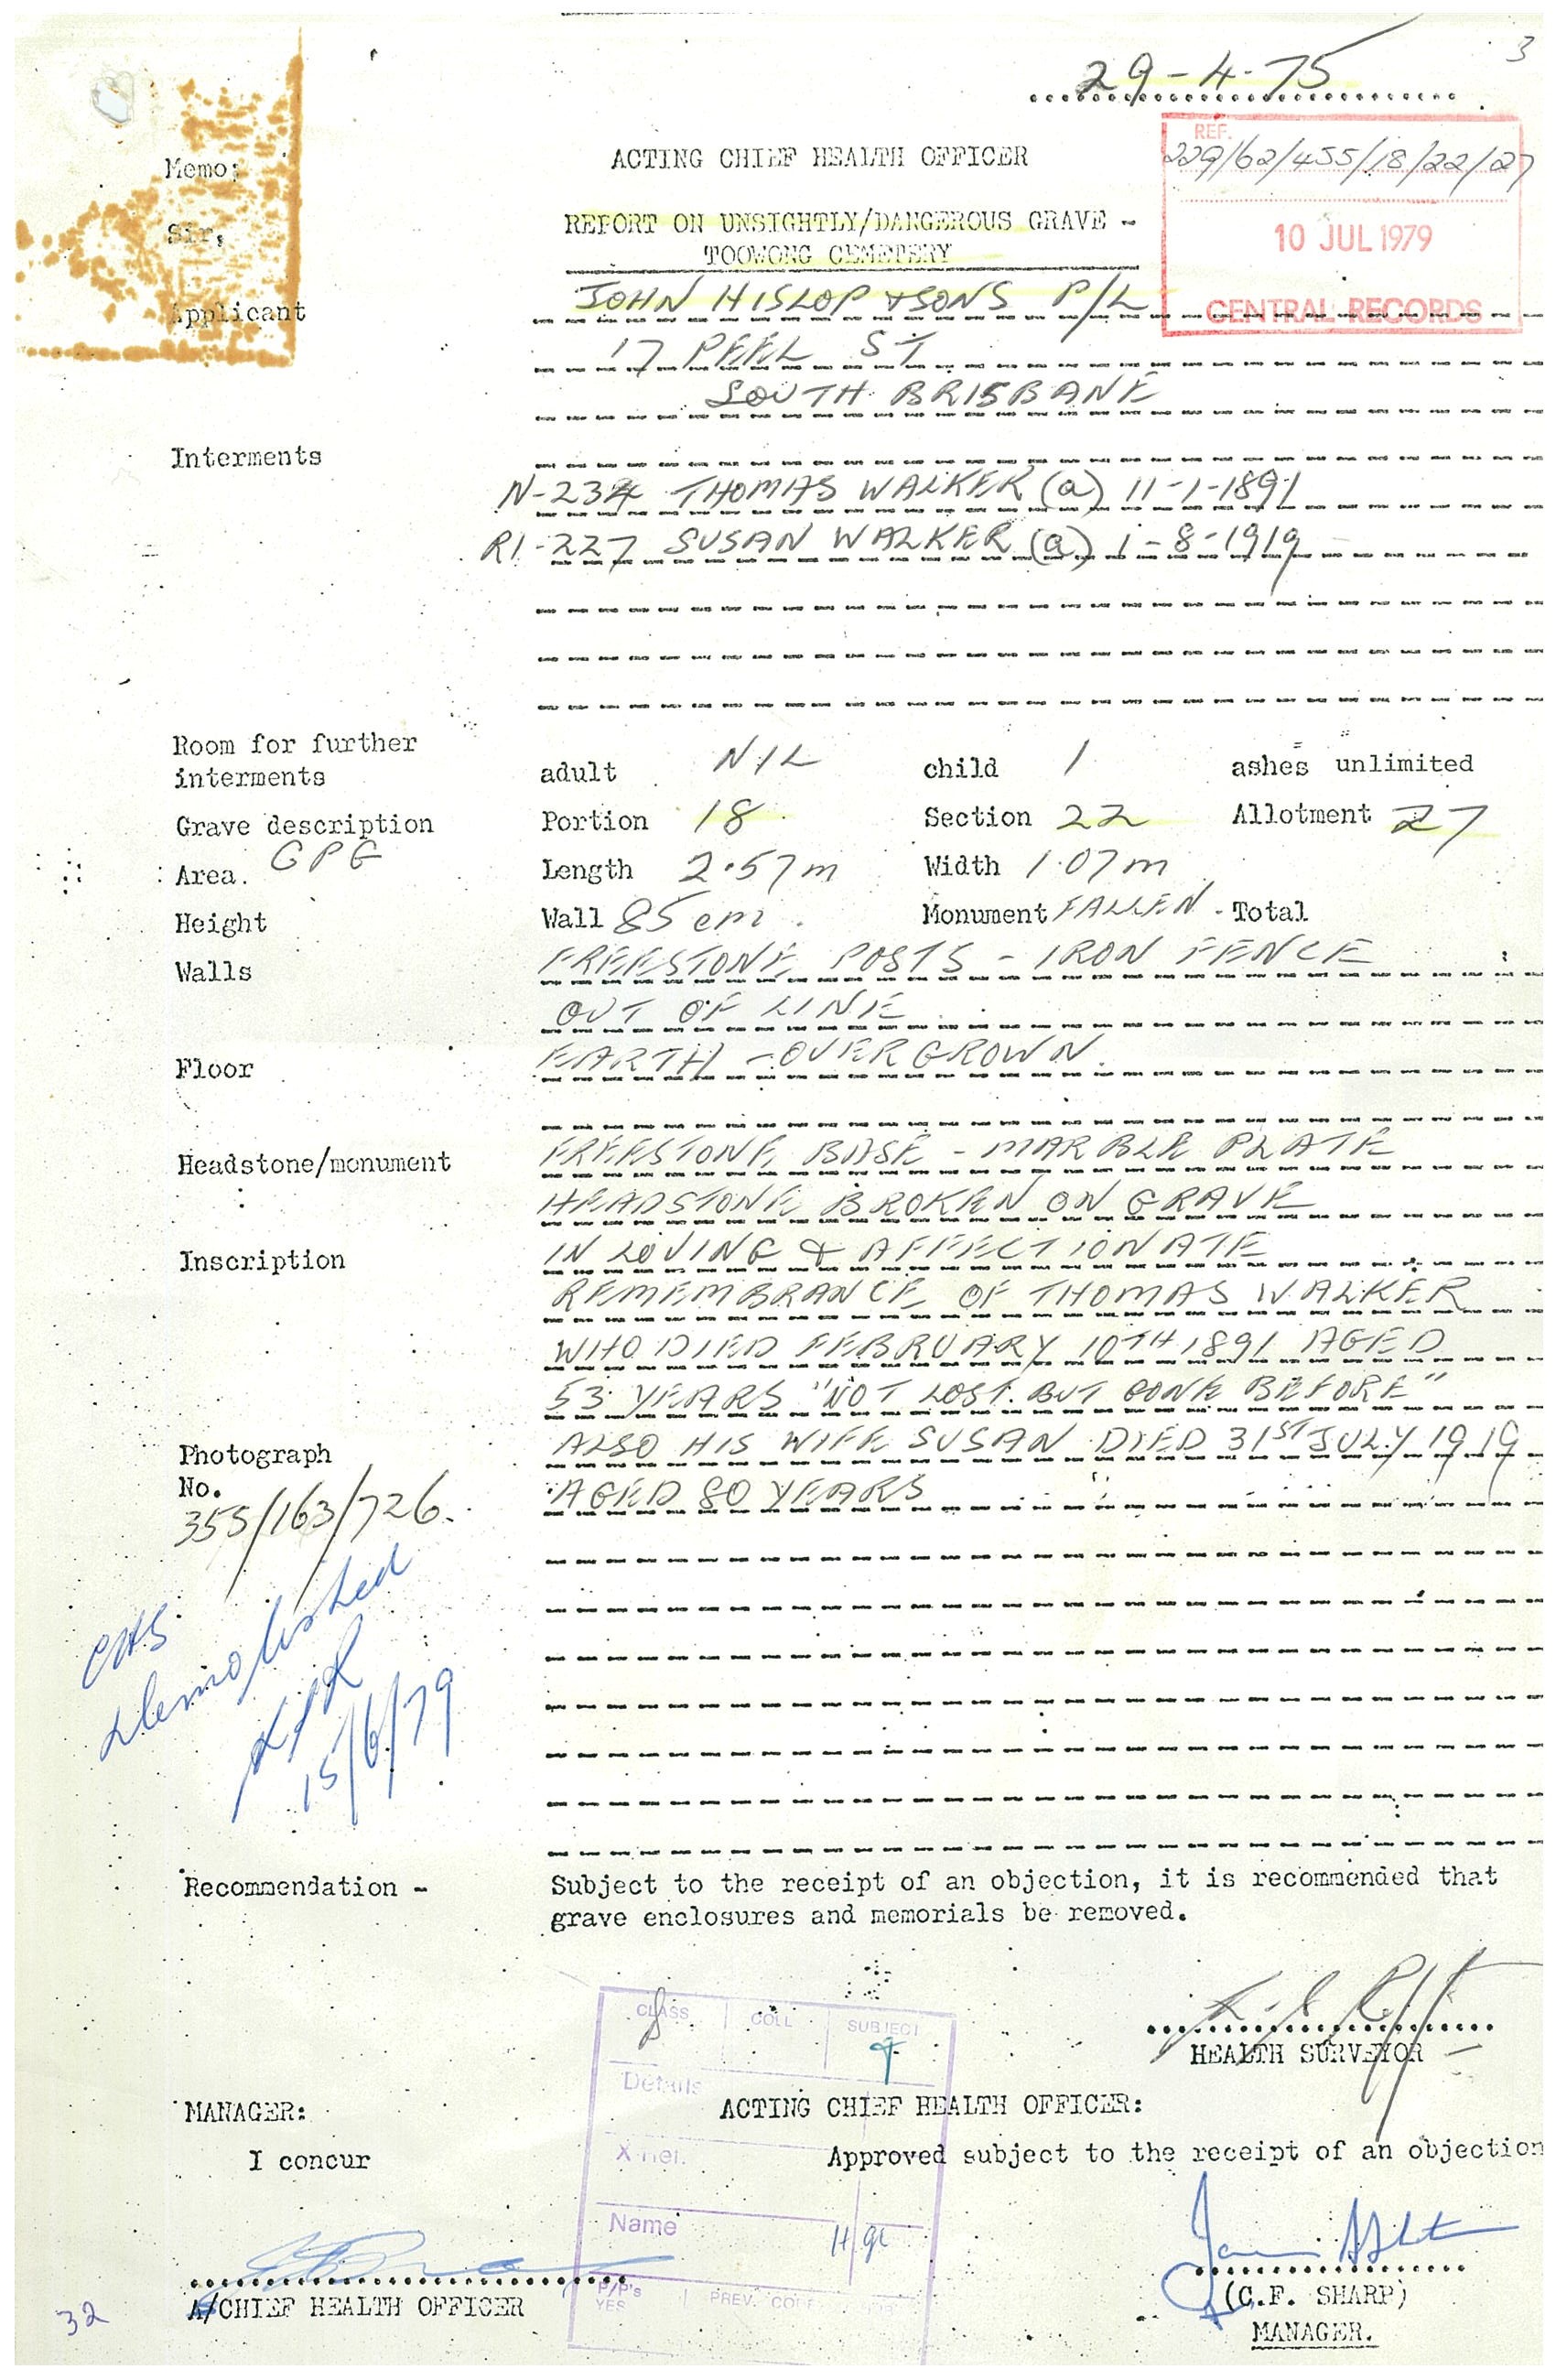 3
29-4-75
Memo:
ACTING CHIEF HEALTH OFFICER
REF.
229/62/455/18/22/27
Sir,
REPORT ON UNSIGHTLY/DANGEROUS GRAVE -
TOOWONG CEMETERY
10 JUL 1979
CENTRAL RECORDS
Applicant
JOHN HISLOP & SONS P/L
17 PEEL ST
SOUTH BRISBANE
Interments
N-234 THOMAS WALKER (a) 11-1-1891
R1-227 SUSAN WALKER (a) 1-8-1919
Room for further
interments
adult NIL child 1 ashes unlimited
Grave description Portion 18 Section 22 Allotment 27
Area. GPG Length 2.57m Width 1.07m
Height Wall 85cm. Monument FALLEN. Total
Walls FREESTONE POSTS - IRON FENCE
OUT OF LINE
Floor EARTH - OVERGROWN.
Headstone/monument FREESTONE BASE - MARBLE PLATE
HEADSTONE BROKEN ON GRAVE
Inscription IN LOVING & AFFECTIONATE
REMEMBRANCE OF THOMAS WALKER
WHO DIED FEBRUARY 10TH 1891 AGED
53 YEARS "NOT LOST BUT GONE BEFORE"
ALSO HIS WIFE SUSAN DIED 31ST JULY 1919
AGED 80 YEARS
Photograph
No.
355/163/726.
Demolished
15/6/79
Recommendation - Subject to the receipt of an objection, it is recommended that
grave enclosures and memorials be removed.
HEALTH SURVEYOR
CLASS COLL SUBJECT
Details
MANAGER: ACTING CHIEF HEALTH OFFICER:
I concur Approved subject to the receipt of an objection
X-Ref.
Name
A/CHIEF HEALTH OFFICER
P/P's
YES
PREV.
(C.F. SHARP)
MANAGER.
32